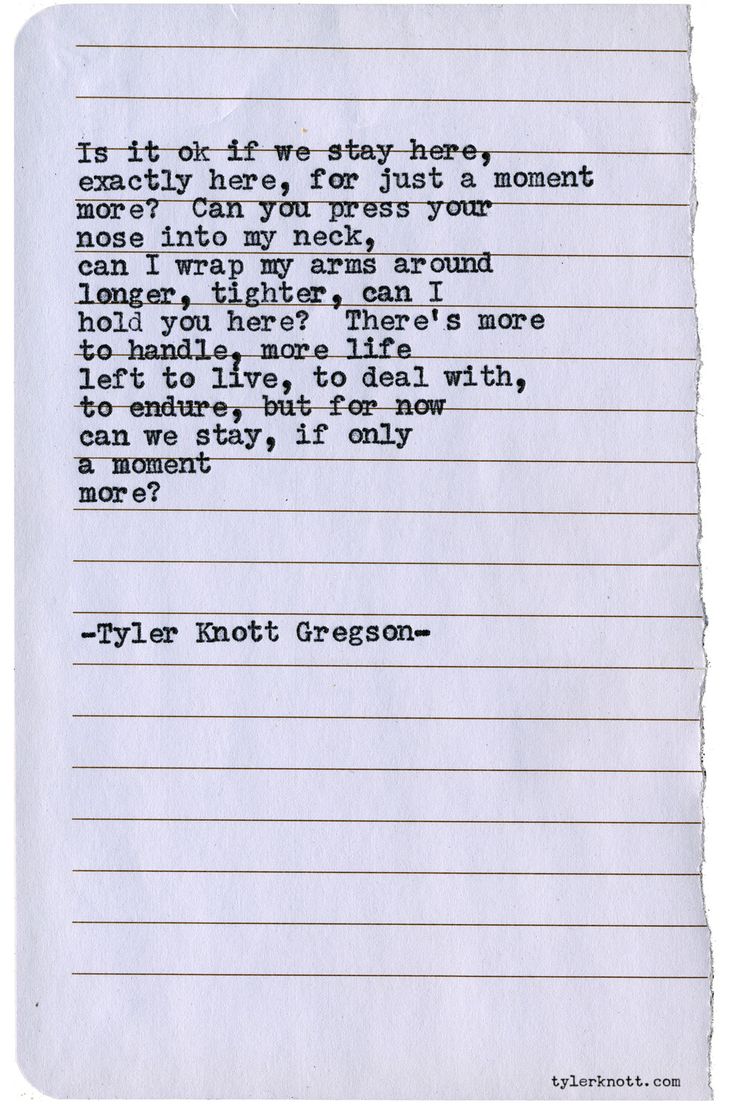 Is it ok if we stay here,
exactly here, for just a moment
more?  Can you press your
nose into my neck,
can I wrap my arms around
longer, tighter, can I
hold you here?  There's more
to handle, more life
left to live, to deal with,
to endure, but for now
can we stay, if only
a moment
more?
-Tyler Knott Gregson-
tylerknott.com